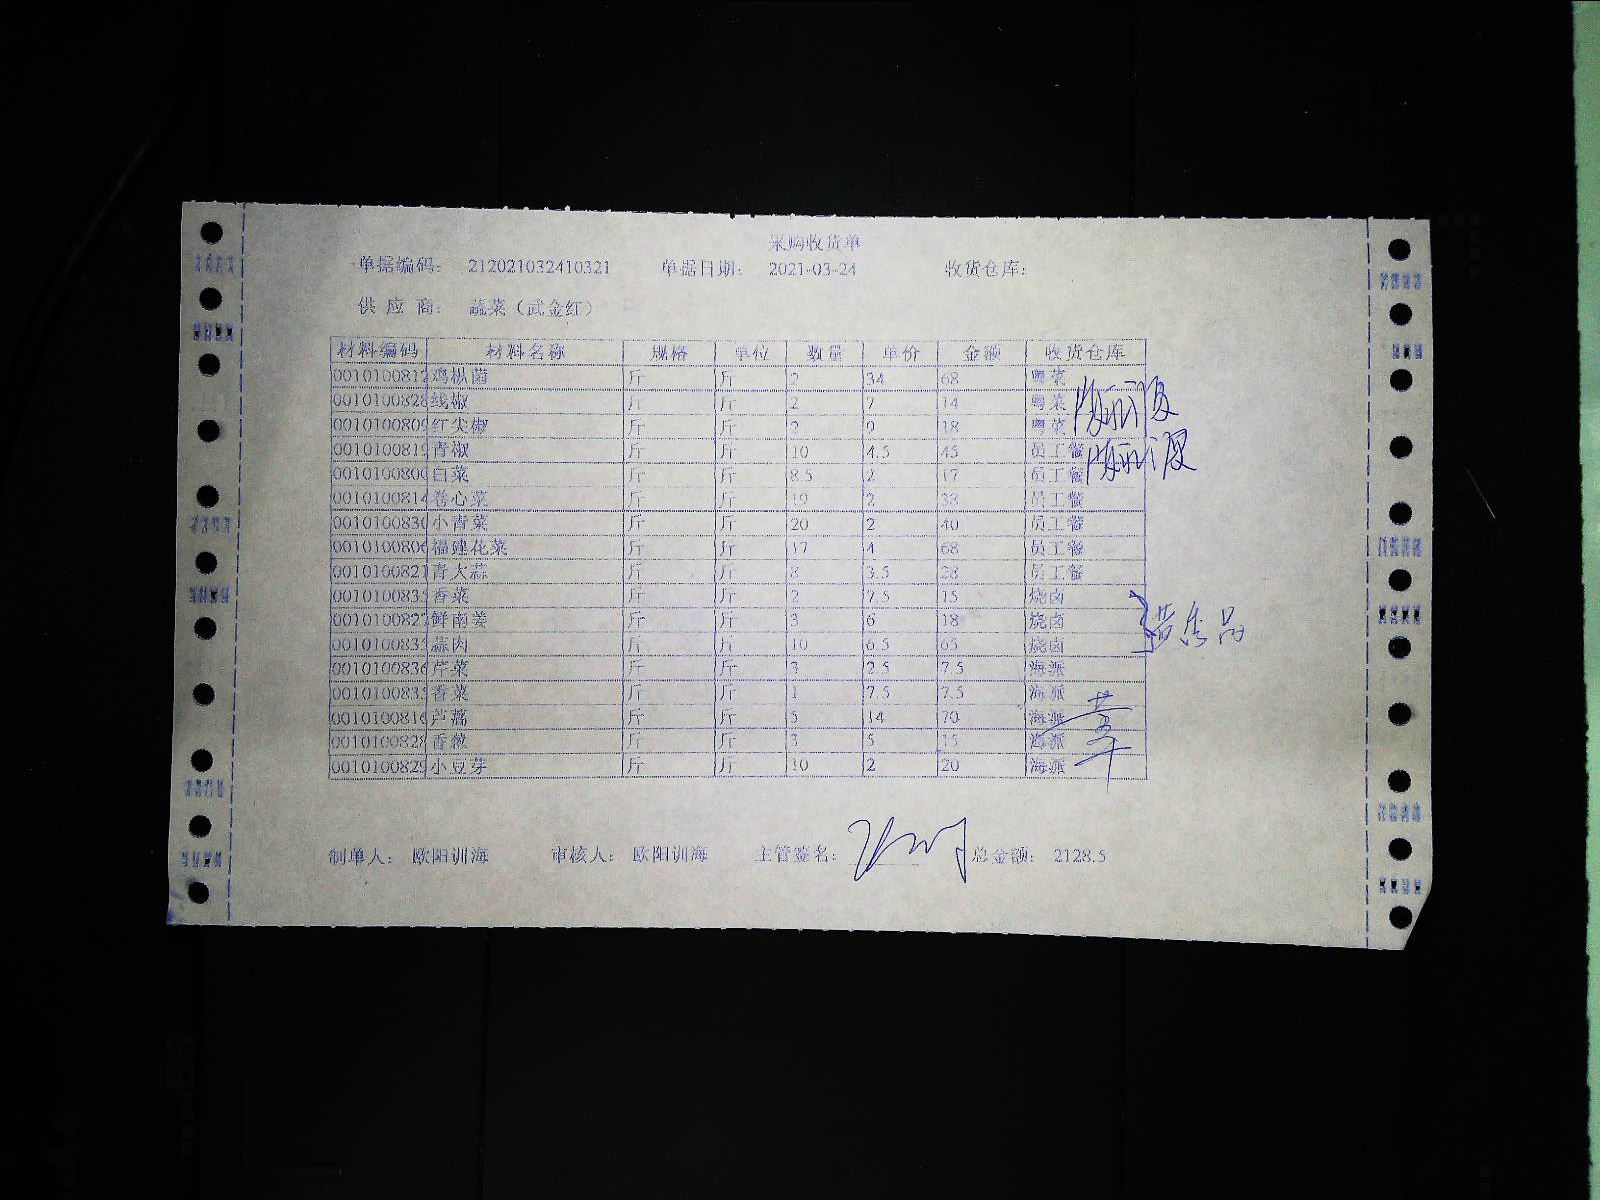 采购收货单
单据编码： 212021032410321 单据日期： 2021-03-24 收货仓库：
供 应 商： 蔬菜（武金红）
材料编码 材料名称 规格 单位 数量 单价 金额 收货仓库
0010100812 鸡枞菌 斤 斤 2 34 68 粤菜
0010100828 线椒 斤 斤 2 7 14 粤菜
0010100809 红尖椒 斤 斤 2 9 18 粤菜
0010100819 青椒 斤 斤 10 4.5 45 员工餐
0010100800 白菜 斤 斤 8.5 2 17 员工餐
0010100814 卷心菜 斤 斤 19 2 38 员工餐
0010100830 小青菜 斤 斤 20 2 40 员工餐
0010100806 福建花菜 斤 斤 17 4 68 员工餐
0010100821 青大蒜 斤 斤 8 3.5 28 员工餐
0010100835 香菜 斤 斤 2 7.5 15 烧卤
0010100827 鲜南姜 斤 斤 3 6 18 烧卤
0010100835 蒜肉 斤 斤 10 6.5 65 烧卤
0010100836 芹菜 斤 斤 3 2.5 7.5 海派
0010100835 香菜 斤 斤 1 7.5 7.5 海派
0010100816 芦蒿 斤 斤 5 14 70 海派
0010100828 香葱 斤 斤 3 5 15 海派
0010100829 小豆芽 斤 斤 10 2 20 海派
制单人： 欧阳训海 审核人： 欧阳训海 主管签名： 总金额： 2128.5